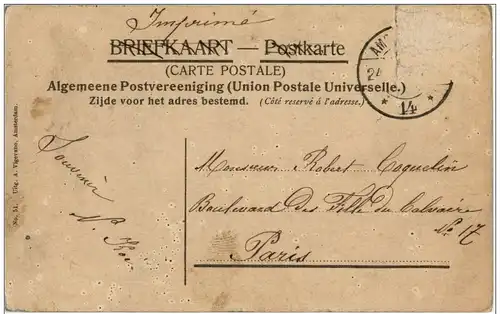 Imprimé
BRIEFKAART — Postkarte
(CARTE POSTALE)
Algemeene Postvereeniging (Union Postale Universelle.)
Zijde voor het adres bestemd. (Côté reservé à l'adresse.)
AMS
24
* 14 *
No. 51. Uitg. A. Vigevano, Amsterdam.
Souvenir
N.
Monsieur Robert Coquelin
Boulevard des Fille du Calvaire
No 17
Paris